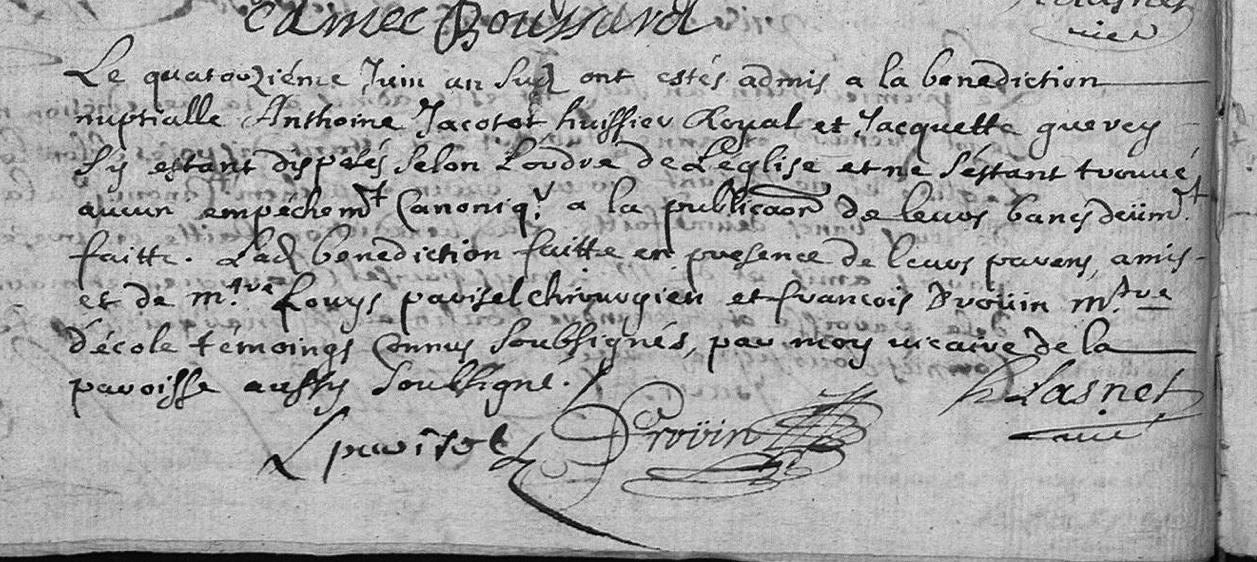 Edmee Boussard
Le quatouziéme Juin an susd ont estés admis a la benediction
nuptialle Anthoine Jacotot huissier Royal et Jacquette guerey
s'y estant disposés selon L'ordre de L'église et ne s'éstant trouvé
aucun empéchemt Canoniq. a la publicaōn de leurs bancs deümt
faitte. Lad benediction faitte en presence de leurs parens, amis
et de m.tre Louys parisel chirurgien et francois Droüin m.tre
d'école temoings Connus soubsignés, par moy vicaire de la
paroisse aussy soubsigné.
Lparisel Droüin Lasnet
vic